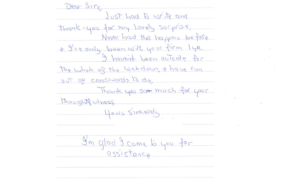 Dear Sir,
Just had to write and
thank-you for my lovely surprise.
Never had this happen before
& I've only been with your firm 1yr.
I haven't been outside for
the whole of the lockdown & have run
out of crosswords to do.
Thank you so much for your
thoughtfulness
Yours sincerely
I'm glad I came to you for
assistance